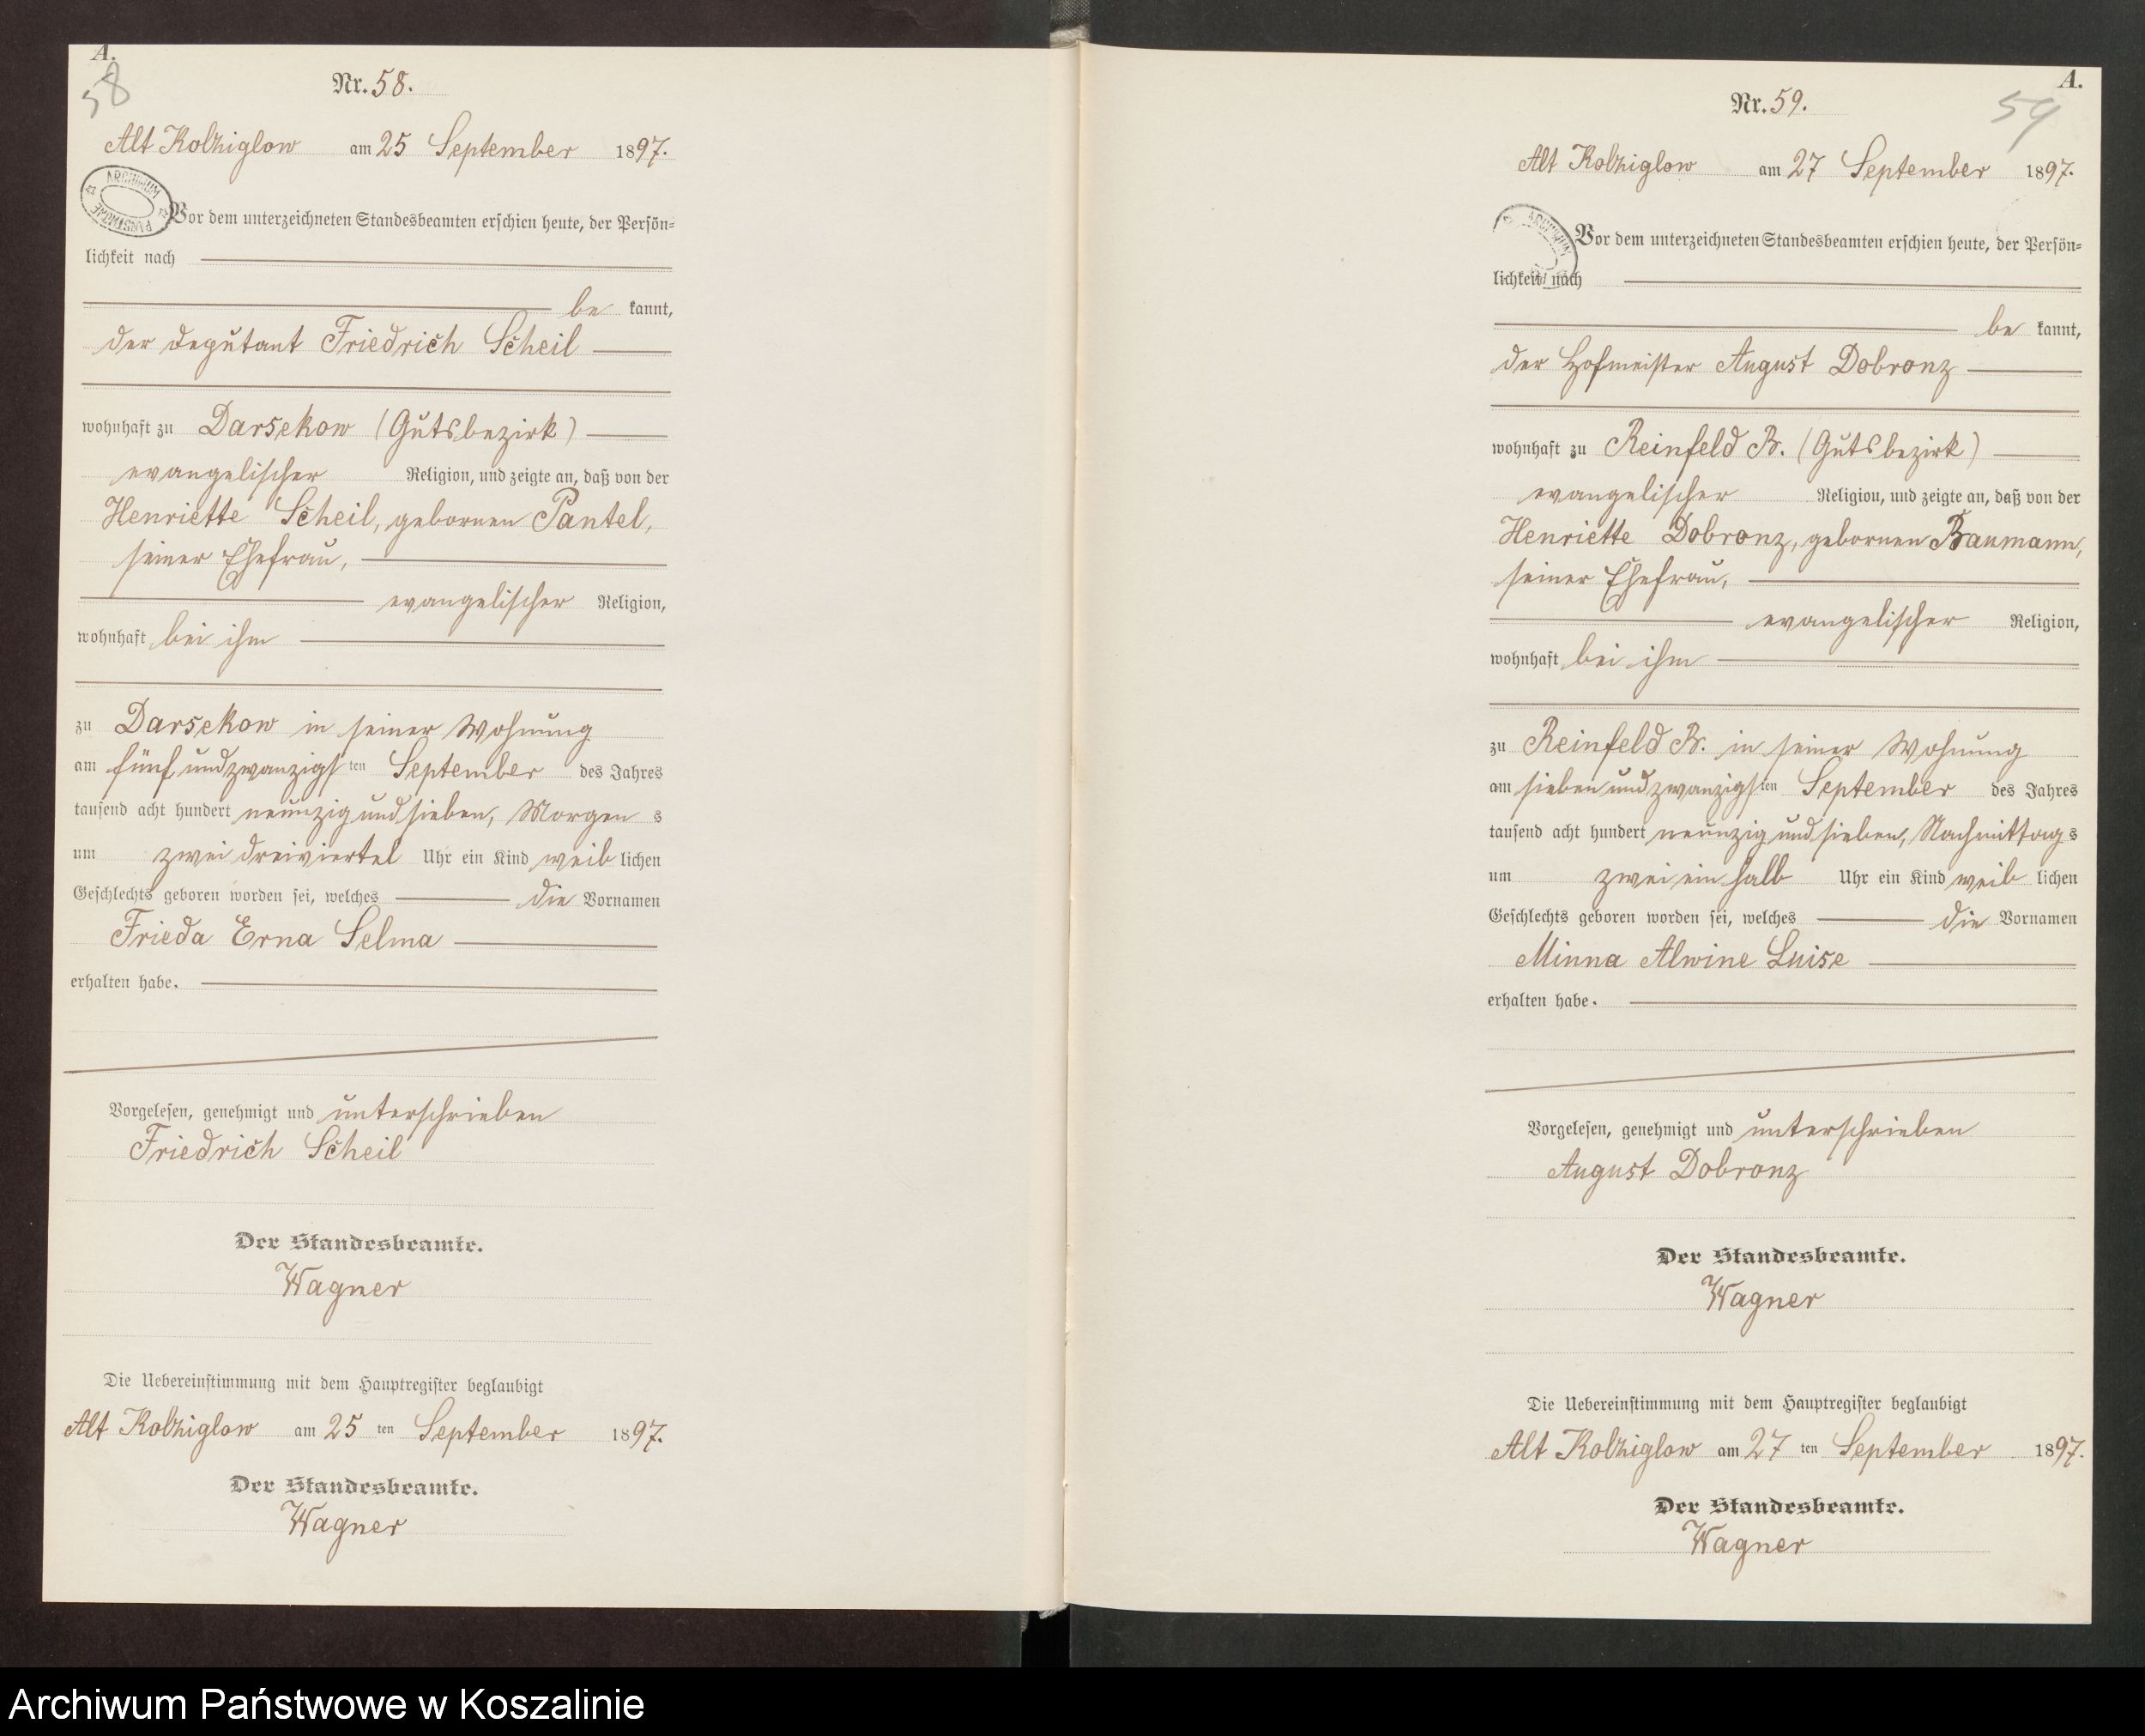 A.
58
Nr. 58.
Alt Kolziglow am 25 September 1897.
Vor dem unterzeichneten Standesbeamten erschien heute, der Persön-
lichkeit nach
be kannt,
der Deputant Friedrich Scheil
wohnhaft zu Darsekow (Gutsbezirk)
evangelischer Religion, und zeigte an, daß von der
Henriette Scheil, gebornen Pantel,
seiner Ehefrau,
evangelischer Religion,
wohnhaft bei ihm
zu Darsekow in seiner Wohnung
am fünf und zwanzigs ten September des Jahres
tausend acht hundert neunzig und sieben, Morgen s
um zwei dreiviertel Uhr ein Kind weib lichen
Geschlechts geboren worden sei, welches die Vornamen
Frieda Erna Selma
erhalten habe.
Vorgelesen, genehmigt und unterschrieben
Friedrich Scheil
Der Standesbeamte.
Wagner
Die Uebereinstimmung mit dem Hauptregister beglaubigt
Alt Kolziglow am 25 ten September 1897.
Der Standesbeamte.
Wagner
A.
59
Nr. 59.
Alt Kolziglow am 27 September 1897.
Vor dem unterzeichneten Standesbeamten erschien heute, der Persön-
lichkeit nach
be kannt,
der Hofmeister August Dobronz
wohnhaft zu Reinfeld B. (Gutsbezirk)
evangelischer Religion, und zeigte an, daß von der
Henriette Dobronz, gebornen Baumann,
seiner Ehefrau,
evangelischer Religion,
wohnhaft bei ihm
zu Reinfeld B. in seiner Wohnung
am sieben und zwanzigs ten September des Jahres
tausend acht hundert neunzig und sieben, Nachmittag s
um zwei ein halb Uhr ein Kind weib lichen
Geschlechts geboren worden sei, welches die Vornamen
Minna Alwine Luise
erhalten habe.
Vorgelesen, genehmigt und unterschrieben
August Dobronz
Der Standesbeamte.
Wagner
Die Uebereinstimmung mit dem Hauptregister beglaubigt
Alt Kolziglow am 27 ten September 1897.
Der Standesbeamte.
Wagner
Archiwum Państwowe w Koszalinie